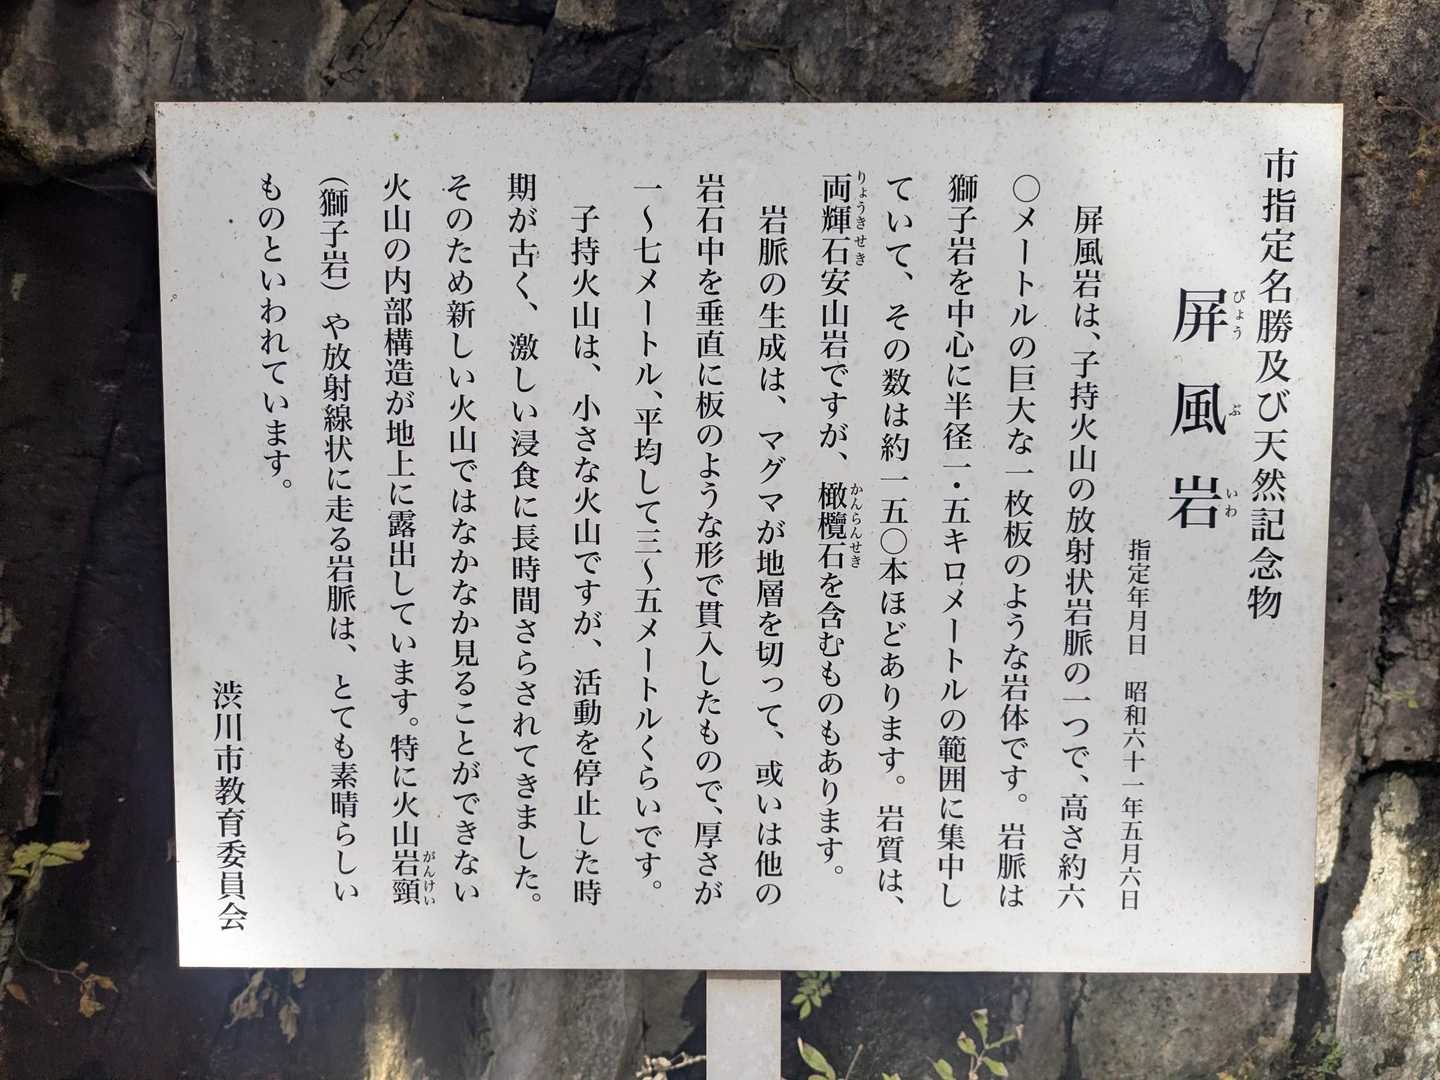 市指定名勝及び天然記念物
屏風岩
びょうぶいわ
指定年月日　昭和六十一年五月六日
屏風岩は、子持火山の放射状岩脈の一つで、高さ約六
〇メートルの巨大な一枚板のような岩体です。岩脈は
獅子岩を中心に半径一・五キロメートルの範囲に集中し
ていて、その数は約一五〇本ほどあります。岩質は、
両輝石安山岩ですが、橄欖石を含むものもあります。
りょうきせき　かんらんせき
岩脈の生成は、マグマが地層を切って、或いは他の
岩石中を垂直に板のような形で貫入したもので、厚さが
一～七メートル、平均して三～五メートルくらいです。
子持火山は、小さな火山ですが、活動を停止した時
期が古く、激しい浸食に長時間さらされてきました。
そのため新しい火山ではなかなか見ることができない
火山の内部構造が地上に露出しています。特に火山岩頸
がんけい
（獅子岩）や放射線状に走る岩脈は、とても素晴らしい
ものといわれています。
渋川市教育委員会